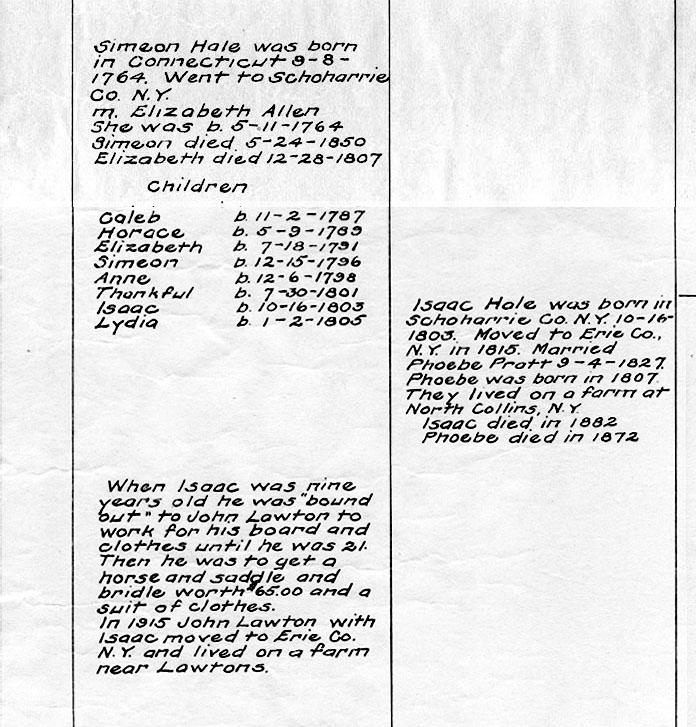 Simeon Hale was born
in Connecticut 9-8-
1764. Went to Schoharrie
Co. N.Y.
m. Elizabeth Allen
She was b. 5-11-1764
Simeon died 5-24-1850
Elizabeth died 12-28-1807
Children
Caleb b. 11-2-1787
Horace b. 5-9-1789
Elizabeth b. 7-18-1791
Simeon b. 12-15-1796
Anne b. 12-6-1798
Thankful b. 7-30-1801
Isaac b. 10-16-1803
Lydia b. 1-2-1805
When Isaac was nine
years old he was "bound
out" to John Lawton to
work for his board and
clothes until he was 21.
Then he was to get a
horse and saddle and
bridle worth $65.00 and a
suit of clothes.
In 1915 John Lawton with
Isaac moved to Erie Co.
N.Y. and lived on a farm
near Lawtons.
Isaac Hale was born in
Schoharrie Co. N.Y. 10-16-
1803. Moved to Erie Co.,
N.Y. in 1815. Married
Phoebe Pratt 9-4-1827.
Phoebe was born in 1807.
They lived on a farm at
North Collins, N.Y.
Isaac died in 1882
Phoebe died in 1872